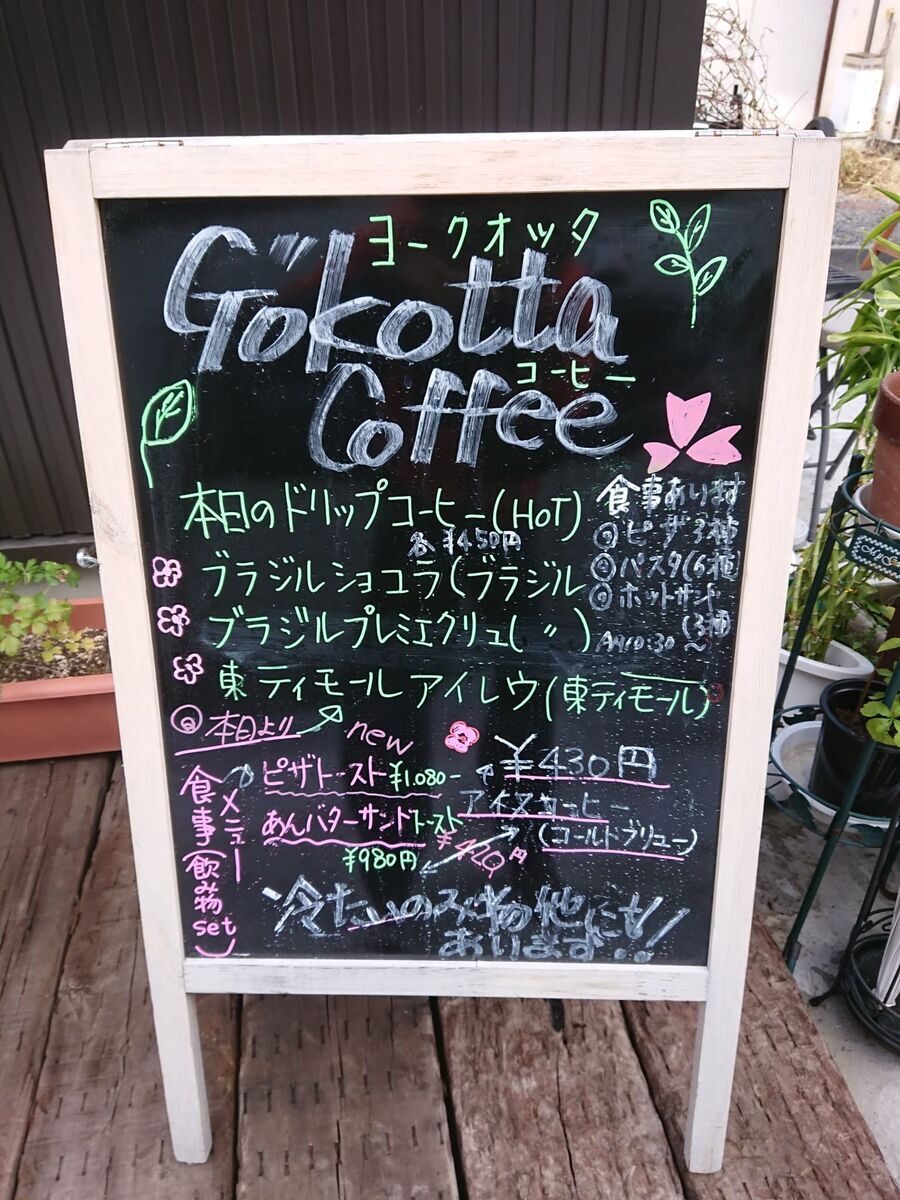 ヨークオッタ
Gökotta
コーヒー
Coffee
本日のドリップコーヒー(HOT)
各¥450円
ブラジルショコラ(ブラジル
ブラジルプレミエクリュ(〃)
東ティモールアイレウ(東ティモール)
◎本日より
new
食事あります
◎ピザ3種
◎パスタ(6種
◎ホットサンド
(3種
AM10:30~
食事メニュー(飲み物set)
ピザトースト¥1.080-
あんバターサンドトースト
¥980円
¥430円
アイスコーヒー
(コールドブリュー)
¥420円
冷たいのみ物他にも
あります!!